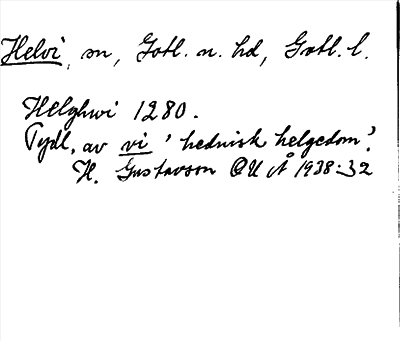 Helvi, sn, Gotl. n. hd, Gotl. l.
Helghwi 1280.
Tydl. av vi 'hednisk helgedom'.
H. Gustavson OUÅ 1938:32